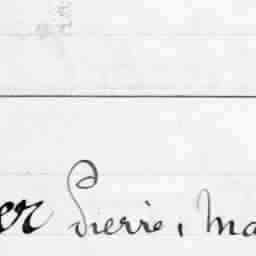 er Pierre, Ma